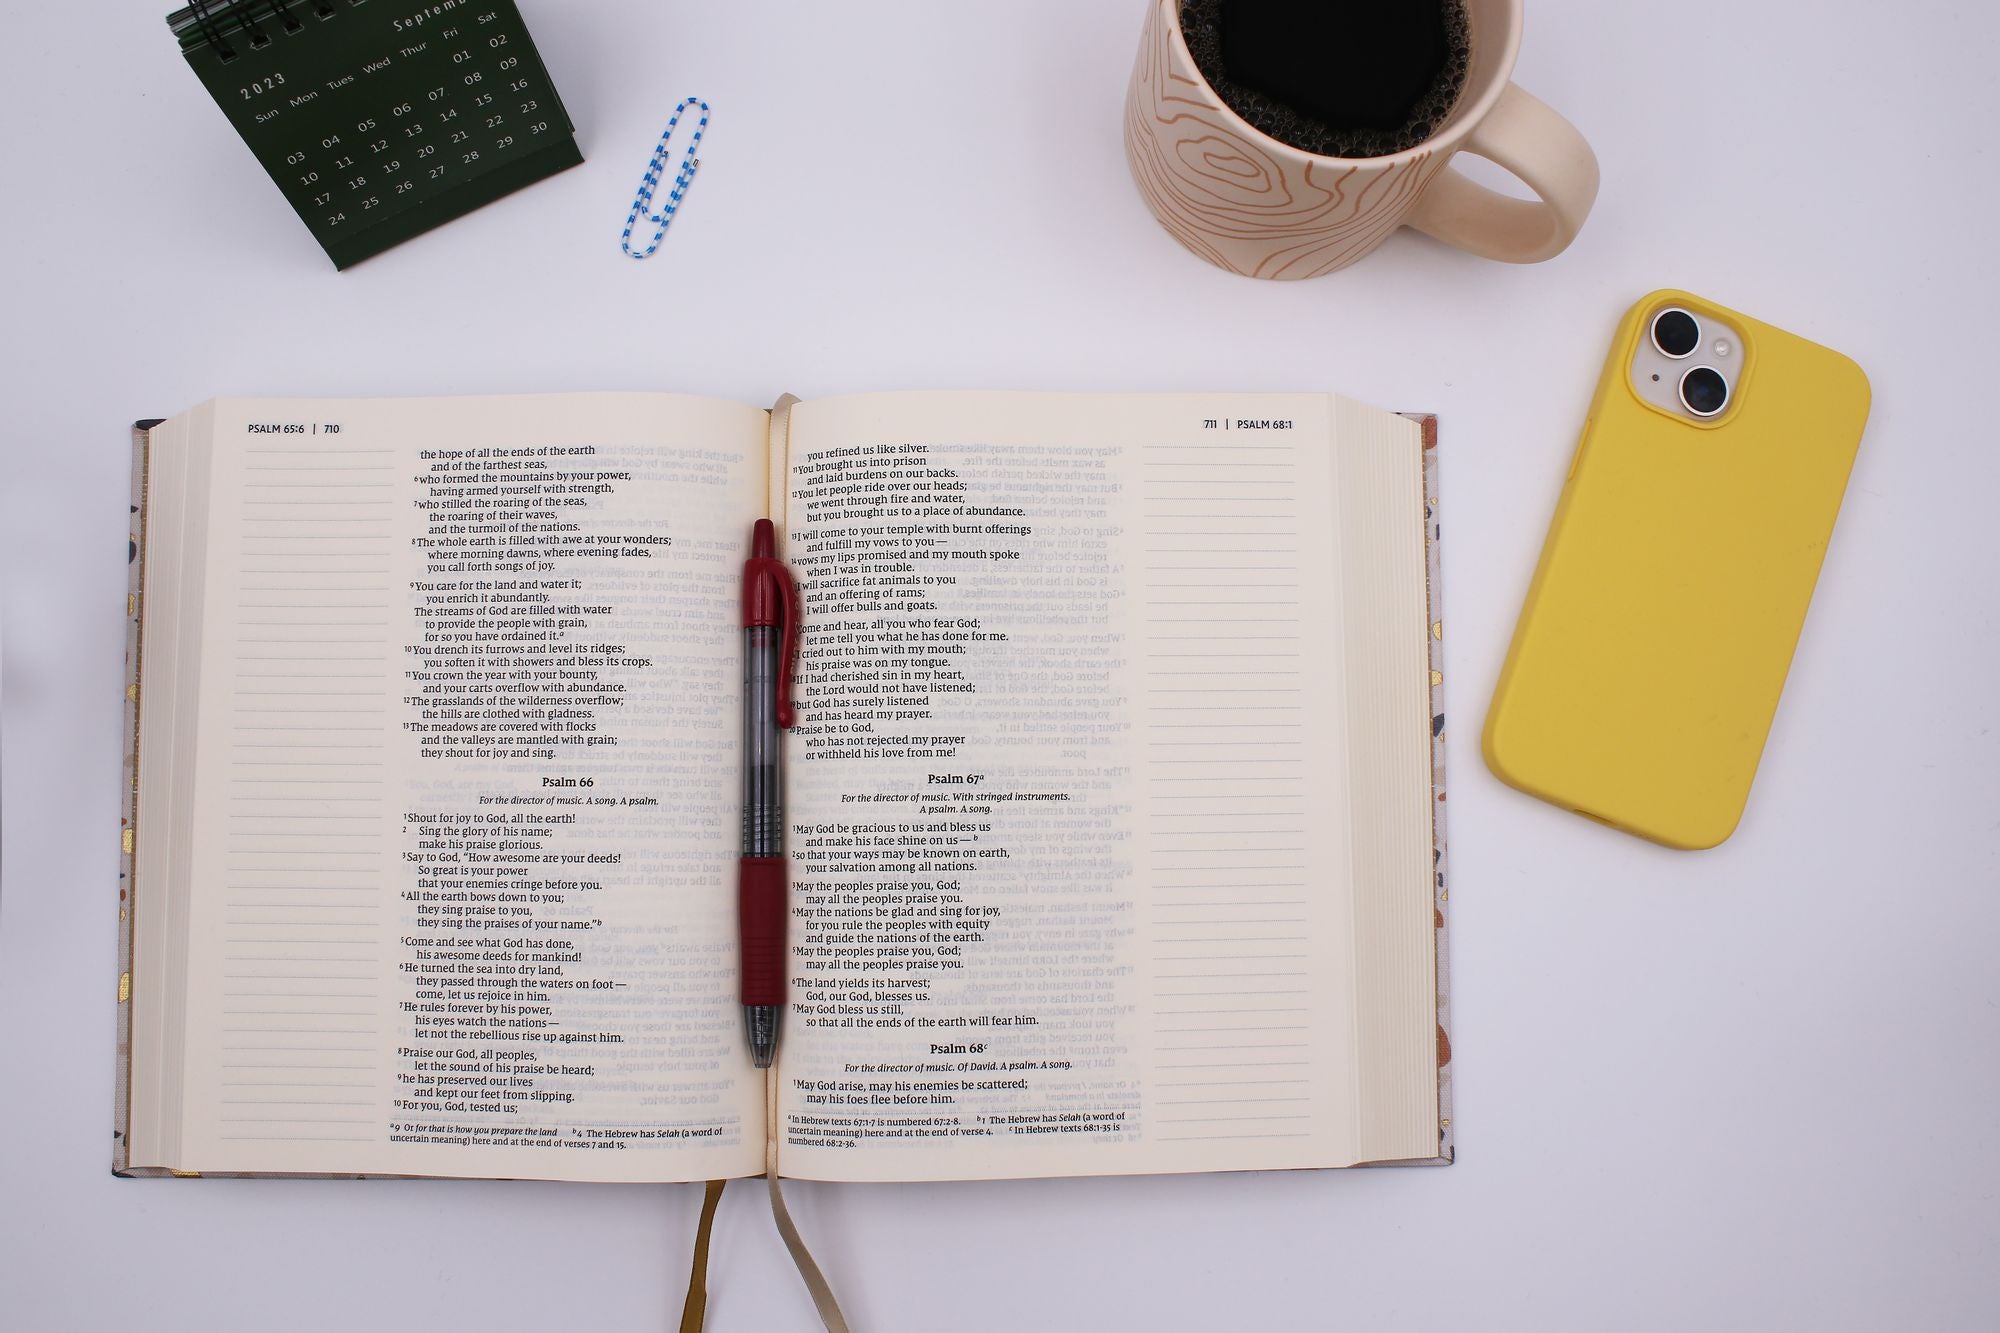 Septemb
2023
Sun Mon Tues Wed Thur Fri Sat
01 02
03 04 05 06 07 08 09
10 11 12 13 14 15 16
17 18 19 20 21 22 23
24 25 26 27 28 29 30
PSALM 65:6 | 710
the hope of all the ends of the earth
and of the farthest seas,
6 who formed the mountains by your power,
having armed yourself with strength,
7 who stilled the roaring of the seas,
the roaring of their waves,
and the turmoil of the nations.
8 The whole earth is filled with awe at your wonders;
where morning dawns, where evening fades,
you call forth songs of joy.
9 You care for the land and water it;
you enrich it abundantly.
The streams of God are filled with water
to provide the people with grain,
for so you have ordained it.a
10 You drench its furrows and level its ridges;
you soften it with showers and bless its crops.
11 You crown the year with your bounty,
and your carts overflow with abundance.
12 The grasslands of the wilderness overflow;
the hills are clothed with gladness.
13 The meadows are covered with flocks
and the valleys are mantled with grain;
they shout for joy and sing.
Psalm 66
For the director of music. A song. A psalm.
1 Shout for joy to God, all the earth!
2 Sing the glory of his name;
make his praise glorious.
3 Say to God, “How awesome are your deeds!
So great is your power
that your enemies cringe before you.
4 All the earth bows down to you;
they sing praise to you,
they sing the praises of your name.”b
5 Come and see what God has done,
his awesome deeds for mankind!
6 He turned the sea into dry land,
they passed through the waters on foot—
come, let us rejoice in him.
7 He rules forever by his power,
his eyes watch the nations—
let not the rebellious rise up against him.
8 Praise our God, all peoples,
let the sound of his praise be heard;
9 he has preserved our lives
and kept our feet from slipping.
10 For you, God, tested us;
a 9 Or for that is how you prepare the land b 4 The Hebrew has Selah (a word of
uncertain meaning) here and at the end of verses 7 and 15.
711 | PSALM 68:1
you refined us like silver.
11 You brought us into prison
and laid burdens on our backs.
12 You let people ride over our heads;
we went through fire and water,
but you brought us to a place of abundance.
13 I will come to your temple with burnt offerings
and fulfill my vows to you—
14 vows my lips promised and my mouth spoke
when I was in trouble.
I will sacrifice fat animals to you
and an offering of rams;
I will offer bulls and goats.
Come and hear, all you who fear God;
let me tell you what he has done for me.
I cried out to him with my mouth;
his praise was on my tongue.
If I had cherished sin in my heart,
the Lord would not have listened;
but God has surely listened
and has heard my prayer.
20 Praise be to God,
who has not rejected my prayer
or withheld his love from me!
Psalm 67a
For the director of music. With stringed instruments.
A psalm. A song.
1 May God be gracious to us and bless us
and make his face shine on us—b
2 so that your ways may be known on earth,
your salvation among all nations.
3 May the peoples praise you, God;
may all the peoples praise you.
4 May the nations be glad and sing for joy,
for you rule the peoples with equity
and guide the nations of the earth.
5 May the peoples praise you, God;
may all the peoples praise you.
6 The land yields its harvest;
God, our God, blesses us.
7 May God bless us still,
so that all the ends of the earth will fear him.
Psalm 68c
For the director of music. Of David. A psalm. A song.
1 May God arise, may his enemies be scattered;
may his foes flee before him.
a In Hebrew texts 67:1-7 is numbered 67:2-8. b 1 The Hebrew has Selah (a word of
uncertain meaning) here and at the end of verse 4. c In Hebrew texts 68:1-35 is
numbered 68:2-36.